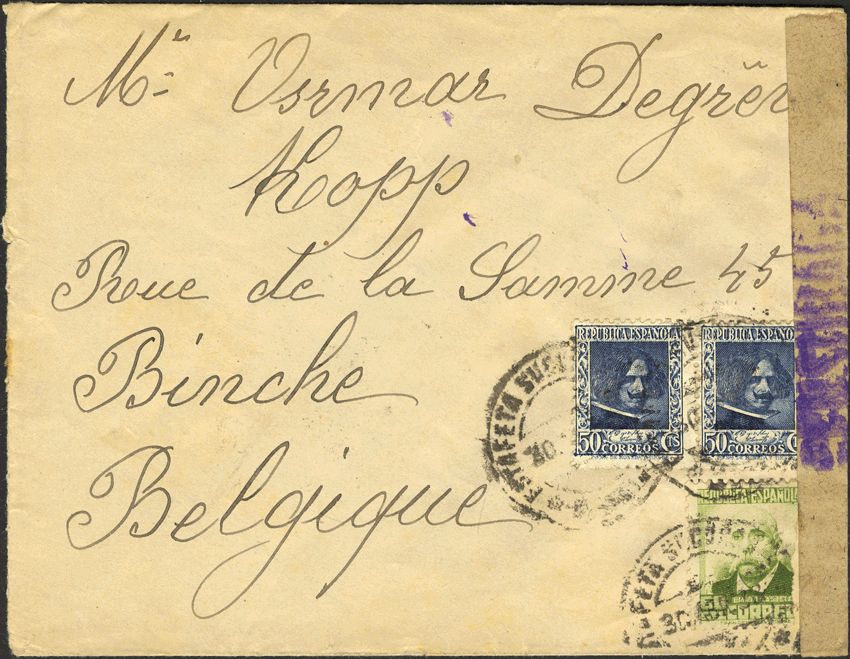 Mr Osmar Degrër
Kopp
Rue de la Samme 45
Binche
Belgique
REPUBLICA ESPAÑOLA
50 CTS
CORREOS
REPUBLICA ESPAÑOLA
50 C
CORREOS
REPUBLICA ESPAÑOLA
CORREOS
ESTAFETA SUCU
30
ESTAFETA SUCUR
30
CENSURA